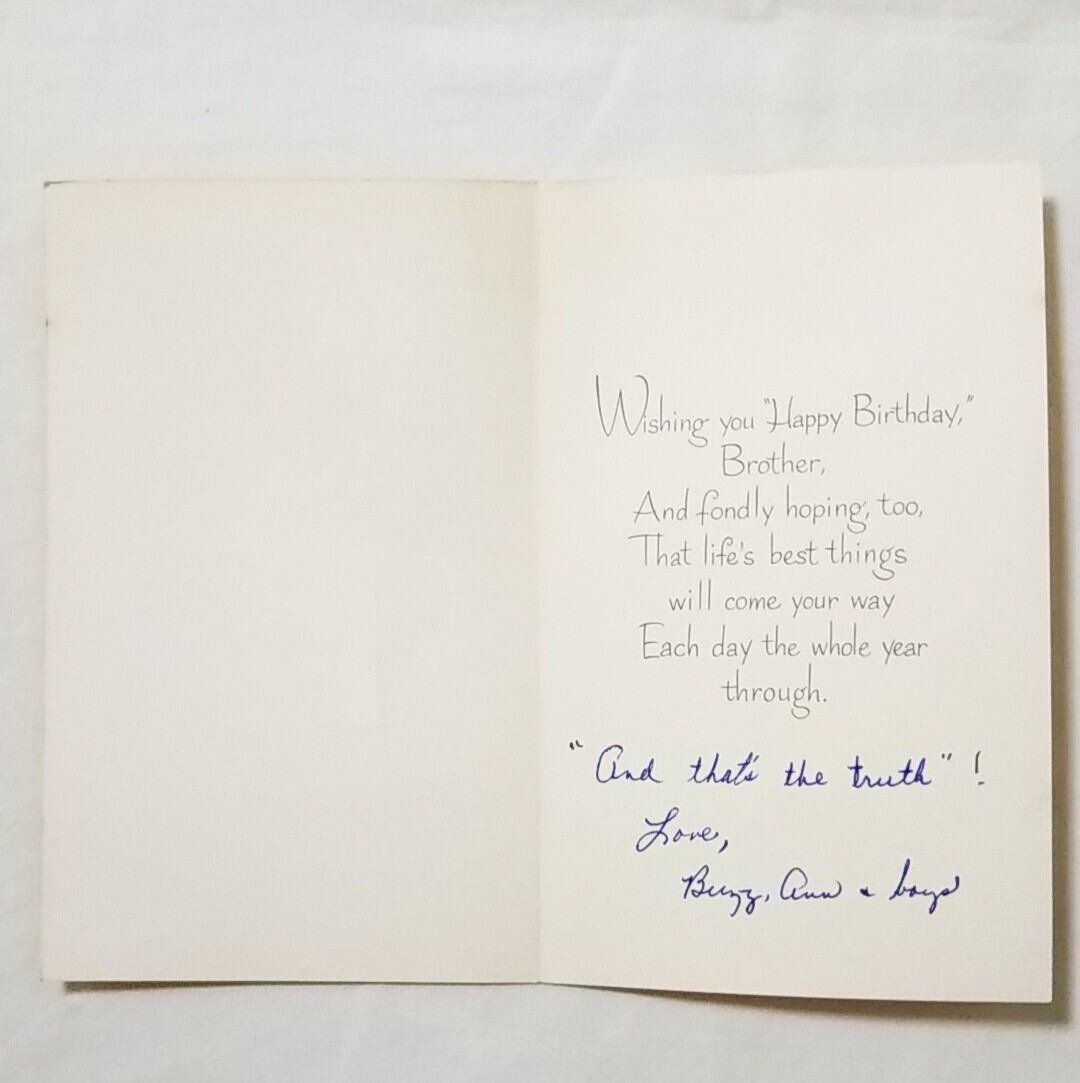 Wishing you "Happy Birthday,"
Brother,
And fondly hoping, too,
That life's best things
will come your way
Each day the whole year
through.
"And that's the truth"!
Love,
Buzz, Ann & boys